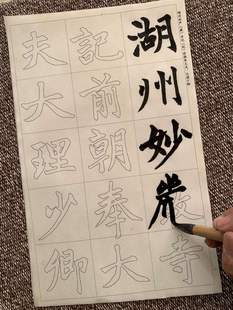 湖州妙嚴寺
記前朝奉大
夫大理少卿